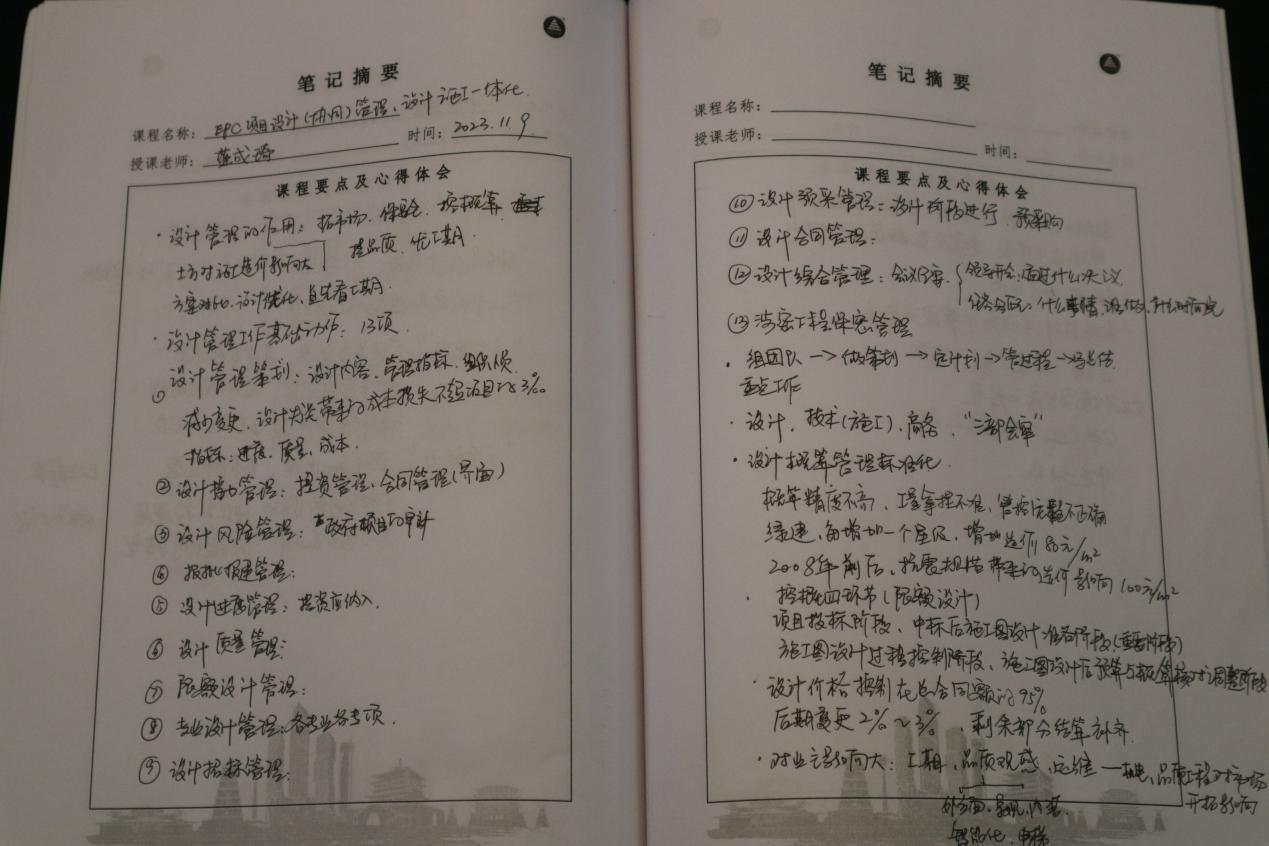 笔记摘要
课程名称: EPC项目设计(协同)管理、设计施工一体化
时间: 2023.11.9
授课老师:
课程要点及心得体会
· 设计管理的作用: 拓市场、保验、控概算、
提品质、优工期.
土方对施工造价影响大
方案对比、设计优化、且先看工期.
· 设计管理工作基础动作: 13项.
① 设计管理策划: 设计内容、管理指标、组织人员
减少变更、设计失误带来的成本损失不超项目的3‰
指标: 进度、质量、成本.
② 设计接口管理: 投资管理、合同管理(界面)
③ 设计风险管理: 政府项目的审计
④ 报批报建管理:
⑤ 设计进度管理: 提资应纳入.
⑥ 设计质量管理:
⑦ 限额设计管理:
⑧ 专业设计管理: 各专业各专项.
⑨ 设计招标管理:
笔记摘要
课程名称:
授课老师:
时间:
课程要点及心得体会
⑩ 设计预采管理: 设计阶段进行、
⑪ 设计合同管理:
⑫ 设计综合管理: 会议纪要. 领导开会,通过什么决议
任务分配: 什么事情、谁做、什么时间完
⑬ 涉密工程保密管理
· 组团队→做策划→定计划→管过程→写总结
重点工作
· 设计、技术(施工)、商务、“三部会审”
· 设计概算管理标准化.
概算精度不高、工程量拿捏不准、不正确
绿建、每增加一个星级, 增加造价80元/m²
2008年前后、抗震规范带来的造价影响100元/m²
· 控概四环节(限额设计)
项目投标阶段、中标后施工图设计准备阶段(重要阶段)
施工图设计过程控制阶段、施工图设计后预算与概算核对调整阶段
· 设计价格控制在总合同额的95%
后期变更2%~3%、剩余部分结算补齐.
· 对业主影响大: 工期、品质观感、运维—机电、品质工程对市场
开拓影响
外立面、景观、内装、
智能化、电梯